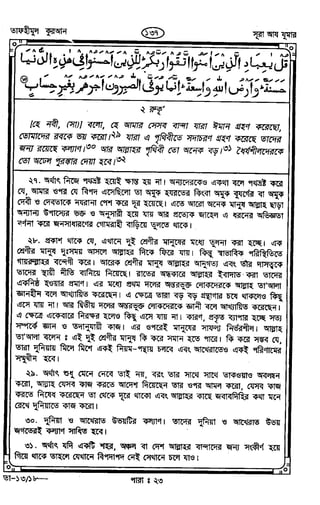 তাফহীমুল কুরআন ১৩৭ সূরা আয যুমার
قُلْ يٰعِبَادِ الَّذِيْنَ اٰمَنُوا اتَّقُوْا رَبَّكُمْ لِلَّذِيْنَ اَحْسَنُوْا فِيْ هٰذِهِ الدُّنْيَا
حَسَنَةٌ وَاَرْضُ اللّٰهِ وَاسِعَةٌ اِنَّمَا يُوَفَّى الصّٰبِرُوْنَ اَجْرَهُمْ بِغَيْرِ حِسَابٍ
২ রুকূ'
[হে নবী, (সা)] বলো, হে আমার সেসব বান্দা যারা ঈমান গ্রহণ করেছো,
তোমাদের রবকে ভয় করো।২৯ যারা এ পৃথিবীতে সদাচরণ গ্রহণ করেছে তাদের
জন্য রয়েছে কল্যাণ।৩০ আর আল্লাহর পৃথিবী তো অনেক বড়।৩১ ধৈর্যশীলদেরকে
তো অঢেল পুরস্কার দেয়া হবে।৩২
২৭. অর্থাৎ নিজে পথভ্রষ্ট হয়েই ক্ষান্ত হয় না। অন্যদেরকেও একথা বলে পথভ্রষ্ট করে
যে, আমার ওপর যে বিপদ এসেছিলো তা অমুক হযরতের কিংবা অমুক বুযর্গের বা অমুক
দেবী ও দেবতাকে নযরানা পেশ করে দূর হয়েছে। এতে আরো অনেক মানুষ আল্লাহ ছাড়া
অন্যান্য উপাস্যের ভক্ত ও অনুসারী হয়ে যায় আর প্রত্যেক জাহেল এ ধরনের অভিজ্ঞতা
বর্ণনা করে জনসাধারণের গোমরাহী বাড়িয়ে তুলতে থাকে।
২৮. প্রকাশ থাকে যে, এখানে দুই শ্রেণীর মানুষের মধ্যে তুলনা করা হচ্ছে। এক
শ্রেণীর মানুষ দুঃসময় আসলে আল্লাহর দিকে ফিরে যায়। কিন্তু স্বাভাবিক পরিস্থিতিতে
গায়রুল্লাহর বন্দেগী করে। আরেক শ্রেণীর মানুষ আল্লাহর আনুগত্য এবং তাঁর দাসত্বকে
তাদের স্থায়ী নীতি বানিয়ে নিয়েছে। রাতের অন্ধকারে আল্লাহর ইবাদাত করা তাদের
একনিষ্ঠ হওয়ার প্রমাণ। এর মধ্যে প্রথম দলের অন্তরভুক্ত লোকদেরকে আল্লাহ তা'আলা
জ্ঞানহীন বলে আখ্যায়িত করেছেন। এ ক্ষেত্রে তারা বড় বড় গ্রন্থাগার চষে থাকলেও কিছু
এসে যায় না। আর দ্বিতীয় দলের অন্তরভুক্ত লোকদেরকে জ্ঞানী বলে আখ্যায়িত করেছেন।
এ ক্ষেত্রে একেবারে নিরক্ষর হলেও কিছু এসে যায় না। কারণ, প্রকৃত ব্যাপার হচ্ছে সত্য
সম্পর্কে জ্ঞান ও তদানুযায়ী কাজ। এর ওপরেই মানুষের সাফল্য নির্ভরশীল। আল্লাহ
তা'আলা বলেন ঃ এই দুই শ্রেণীর মানুষ কি করে সমান হতে পারে। কি করে সম্ভব যে,
তারা দুনিয়ায় মিলে মিশে একই নিয়ম-পন্থায় চলবে এবং আখেরাতেও একই পরিণামের
সম্মুখীন হবে।
২৯. অর্থাৎ শুধু মেনে নেবে তাই নয়, বরং তার সাথে সাথে তাকওয়াও অবলম্বন
করো, আল্লাহ যেসব কাজ করতে আদেশ দিয়েছেন তার ওপর আমল করো, যেসব কাজ
করতে নিষেধ করেছেন তা থেকে দূরে থাকো এবং আল্লাহর কাছে জবাবদিহির কথা মনে
রেখে দুনিয়াতে কাজ করো।
৩০. দুনিয়া ও আখেরাত উভয়টির কল্যাণ। তাদের দুনিয়া ও আখেরাত উভয়
জগতেরই কল্যাণ সাধিত হবে।
৩১. অর্থাৎ যদি একটি শহর, অঞ্চল বা দেশ আল্লাহর বান্দাদের জন্য সংকীর্ণ হয়ে
গিয়ে থাকে তাহলে যেখানে বিপদাপদ নেই সেখানে চলে যাও।
তা-১৩/১৮— পারা ঃ ২৩